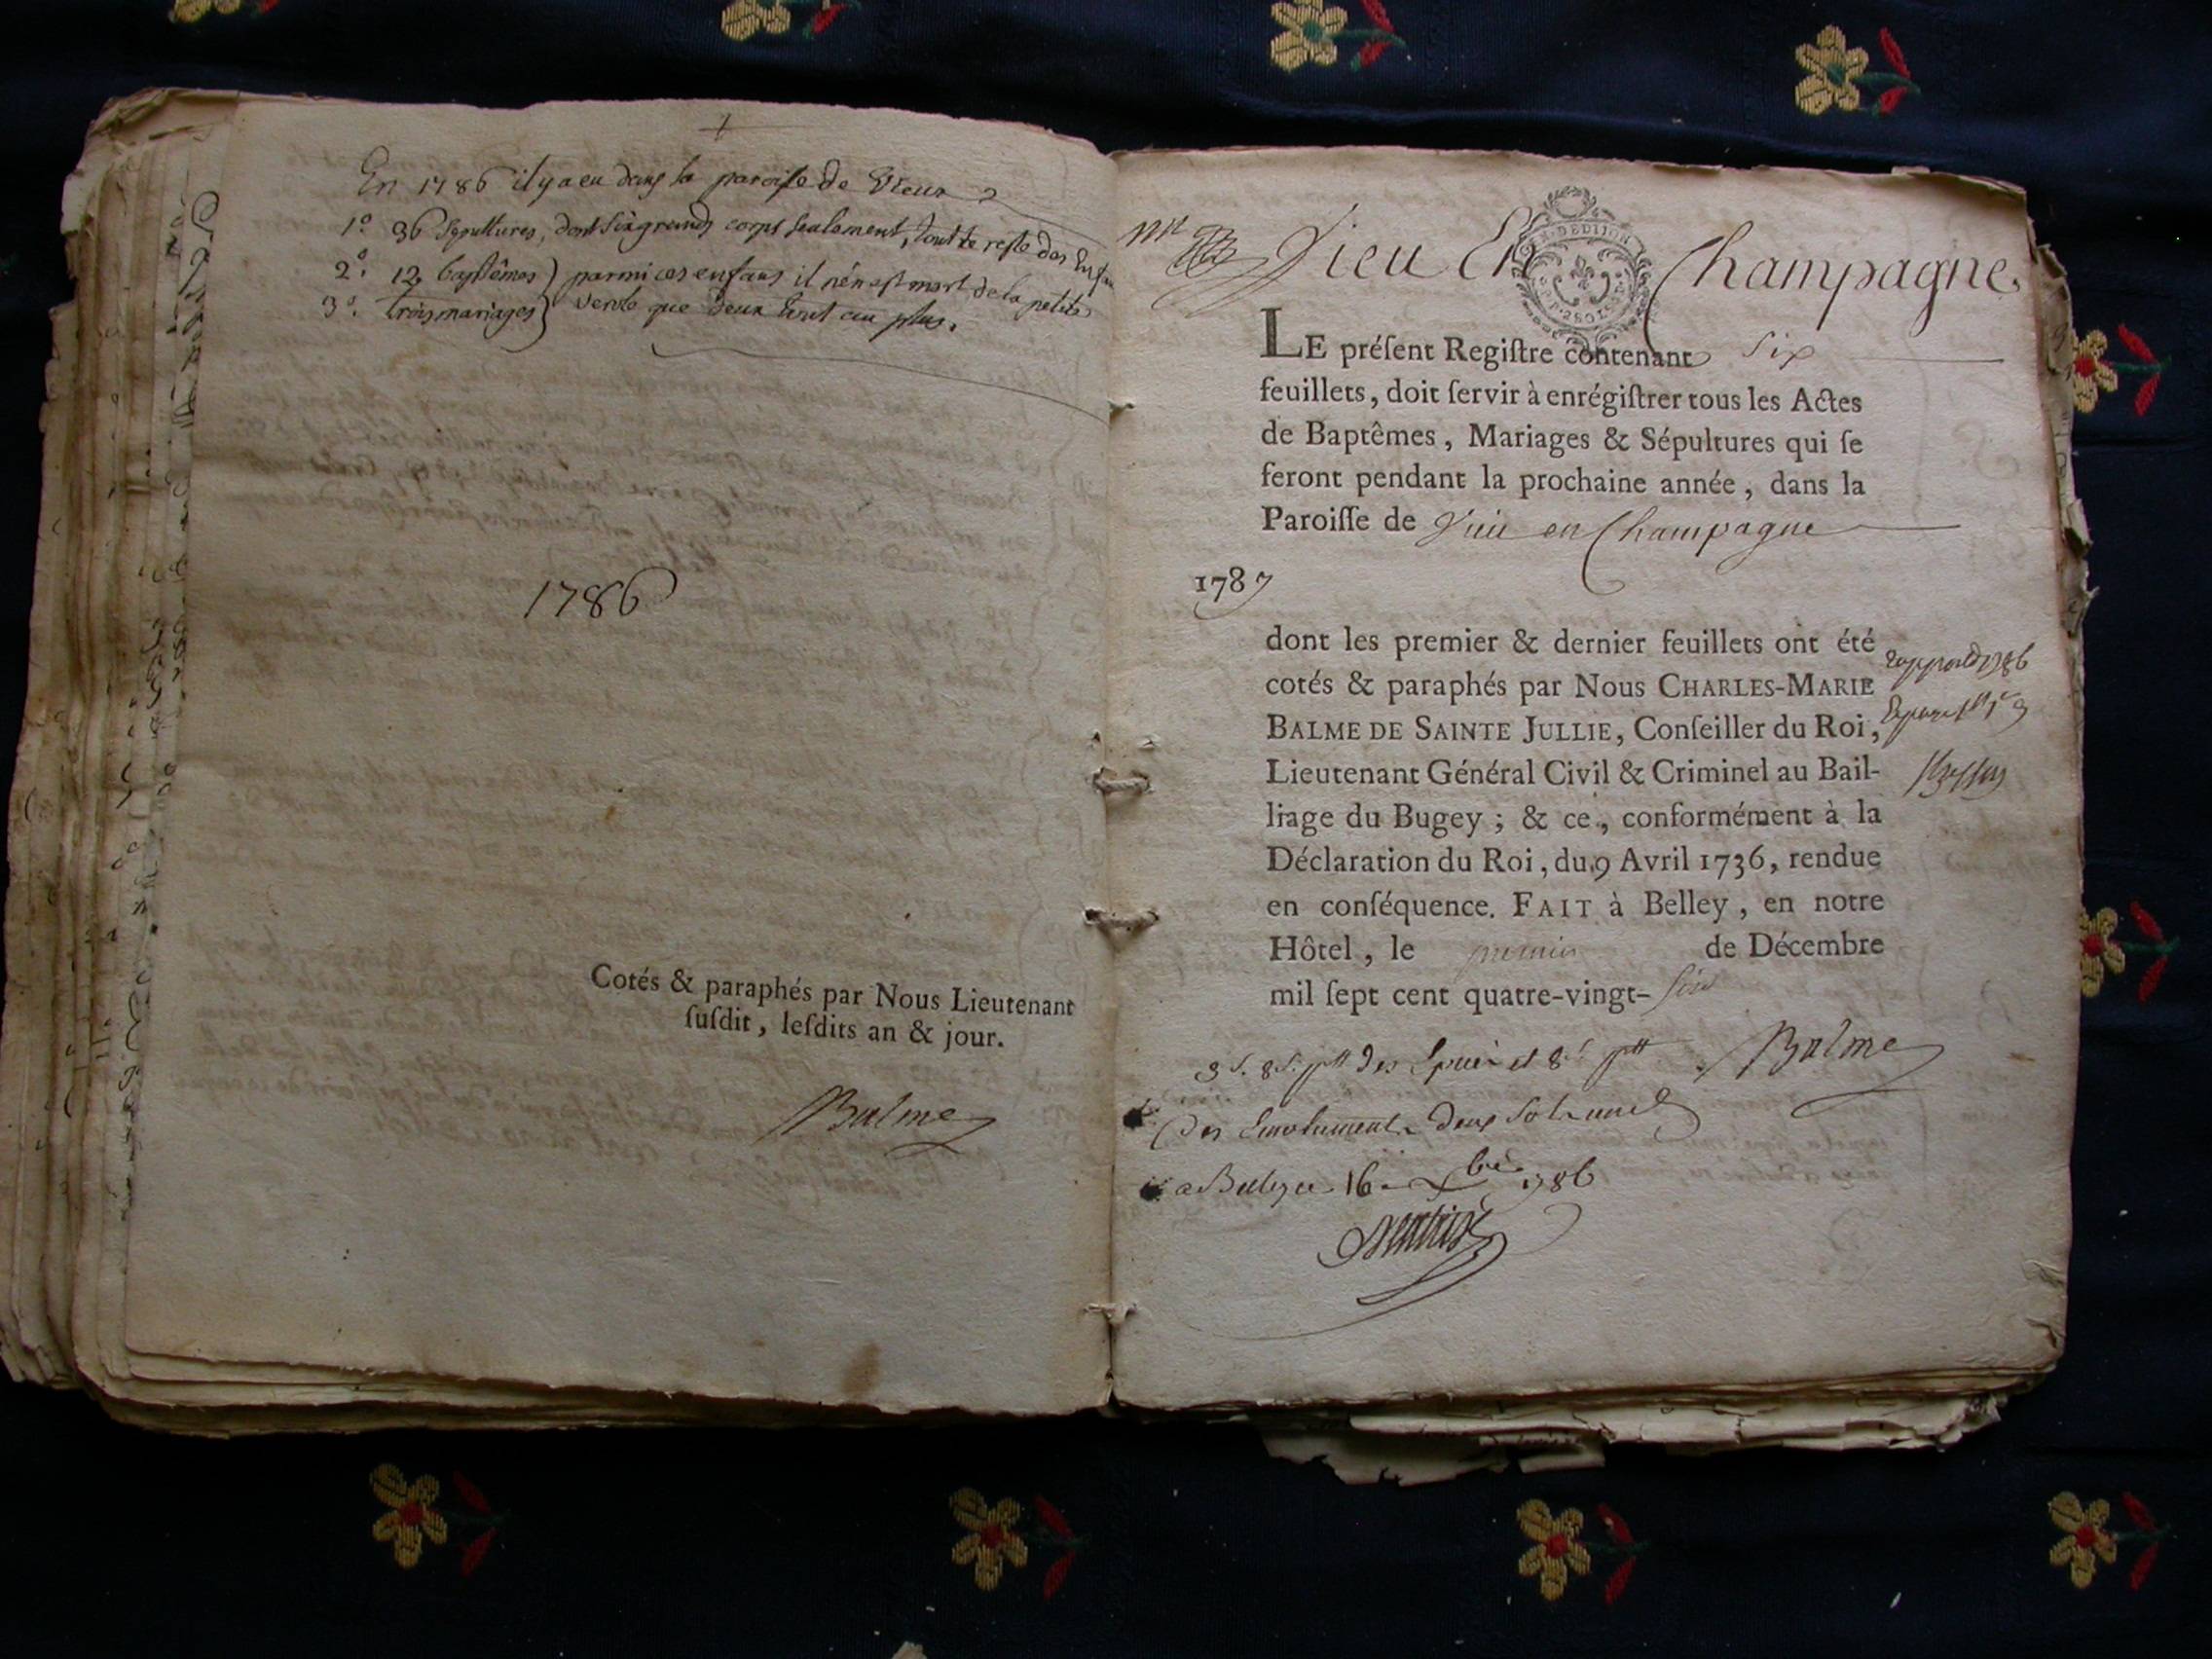 En 1786 il y a eu dans la paroisse de Vieux
1° 36 Sepultures, dont six grands corps seulement, tout le reste des Enfans
2°. 12 baptêmes) parmi ces enfans il n'en est mort de la petite
3°. trois mariages) verole que deux tout au plus.
1786
Cotés & paraphés par Nous Lieutenant
ſuſdit, leſdits an & jour.
Balme
Vieu En Champagne
LE préſent Regiſtre contenant six
feuillets, doit ſervir à enrégiſtrer tous les Actes
de Baptêmes, Mariages & Sépultures qui ſe
feront pendant la prochaine année, dans la
Paroiſſe de Vieu en Champagne
1787
dont les premier & dernier feuillets ont été
cotés & paraphés par Nous CHARLES-MARIE
BALME DE SAINTE JULLIE, Conſeiller du Roi,
Lieutenant Général Civil & Criminel au Bail-
liage du Bugey ; & ce, conformément à la
Déclaration du Roi, du 9 Avril 1736, rendue
en conſéquence. FAIT à Belley, en notre
Hôtel, le premier de Décembre
mil ſept cent quatre-vingt-six
Balme
a Belley ce 16 Xbre 1786